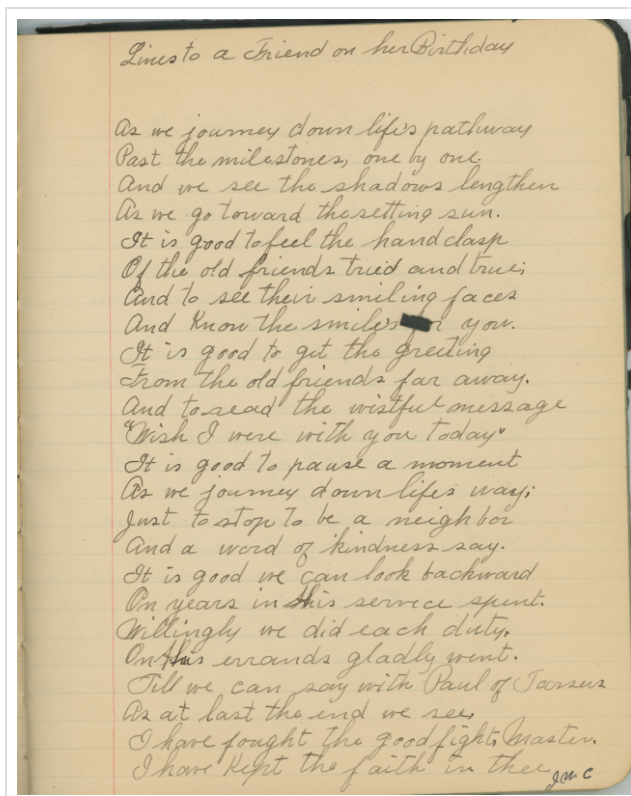 Lines to a Friend on her Birthday
As we journey down life's pathway
Past the milestones, one by one.
And we see the shadows lengthen
As we go toward the setting sun.
It is good to feel the hand clasp
Of the old friends tried and true;
And to see their smiling faces
And Know the smile's for you.
It is good to get the greeting
From the old friends far away.
And to read the wistful message
"Wish I were with you today"
It is good to pause a moment
As we journey down life's way;
Just to stop to be a neighbor
And a word of kindness say.
It is good we can look backward
On years in this service spent.
Willingly we did each duty,
On this errands gladly went.
Till we can say with Paul of Tarsus
As at last the end we see,
I have fought the good fight, Master.
I have Kept the faith in thee
JMC